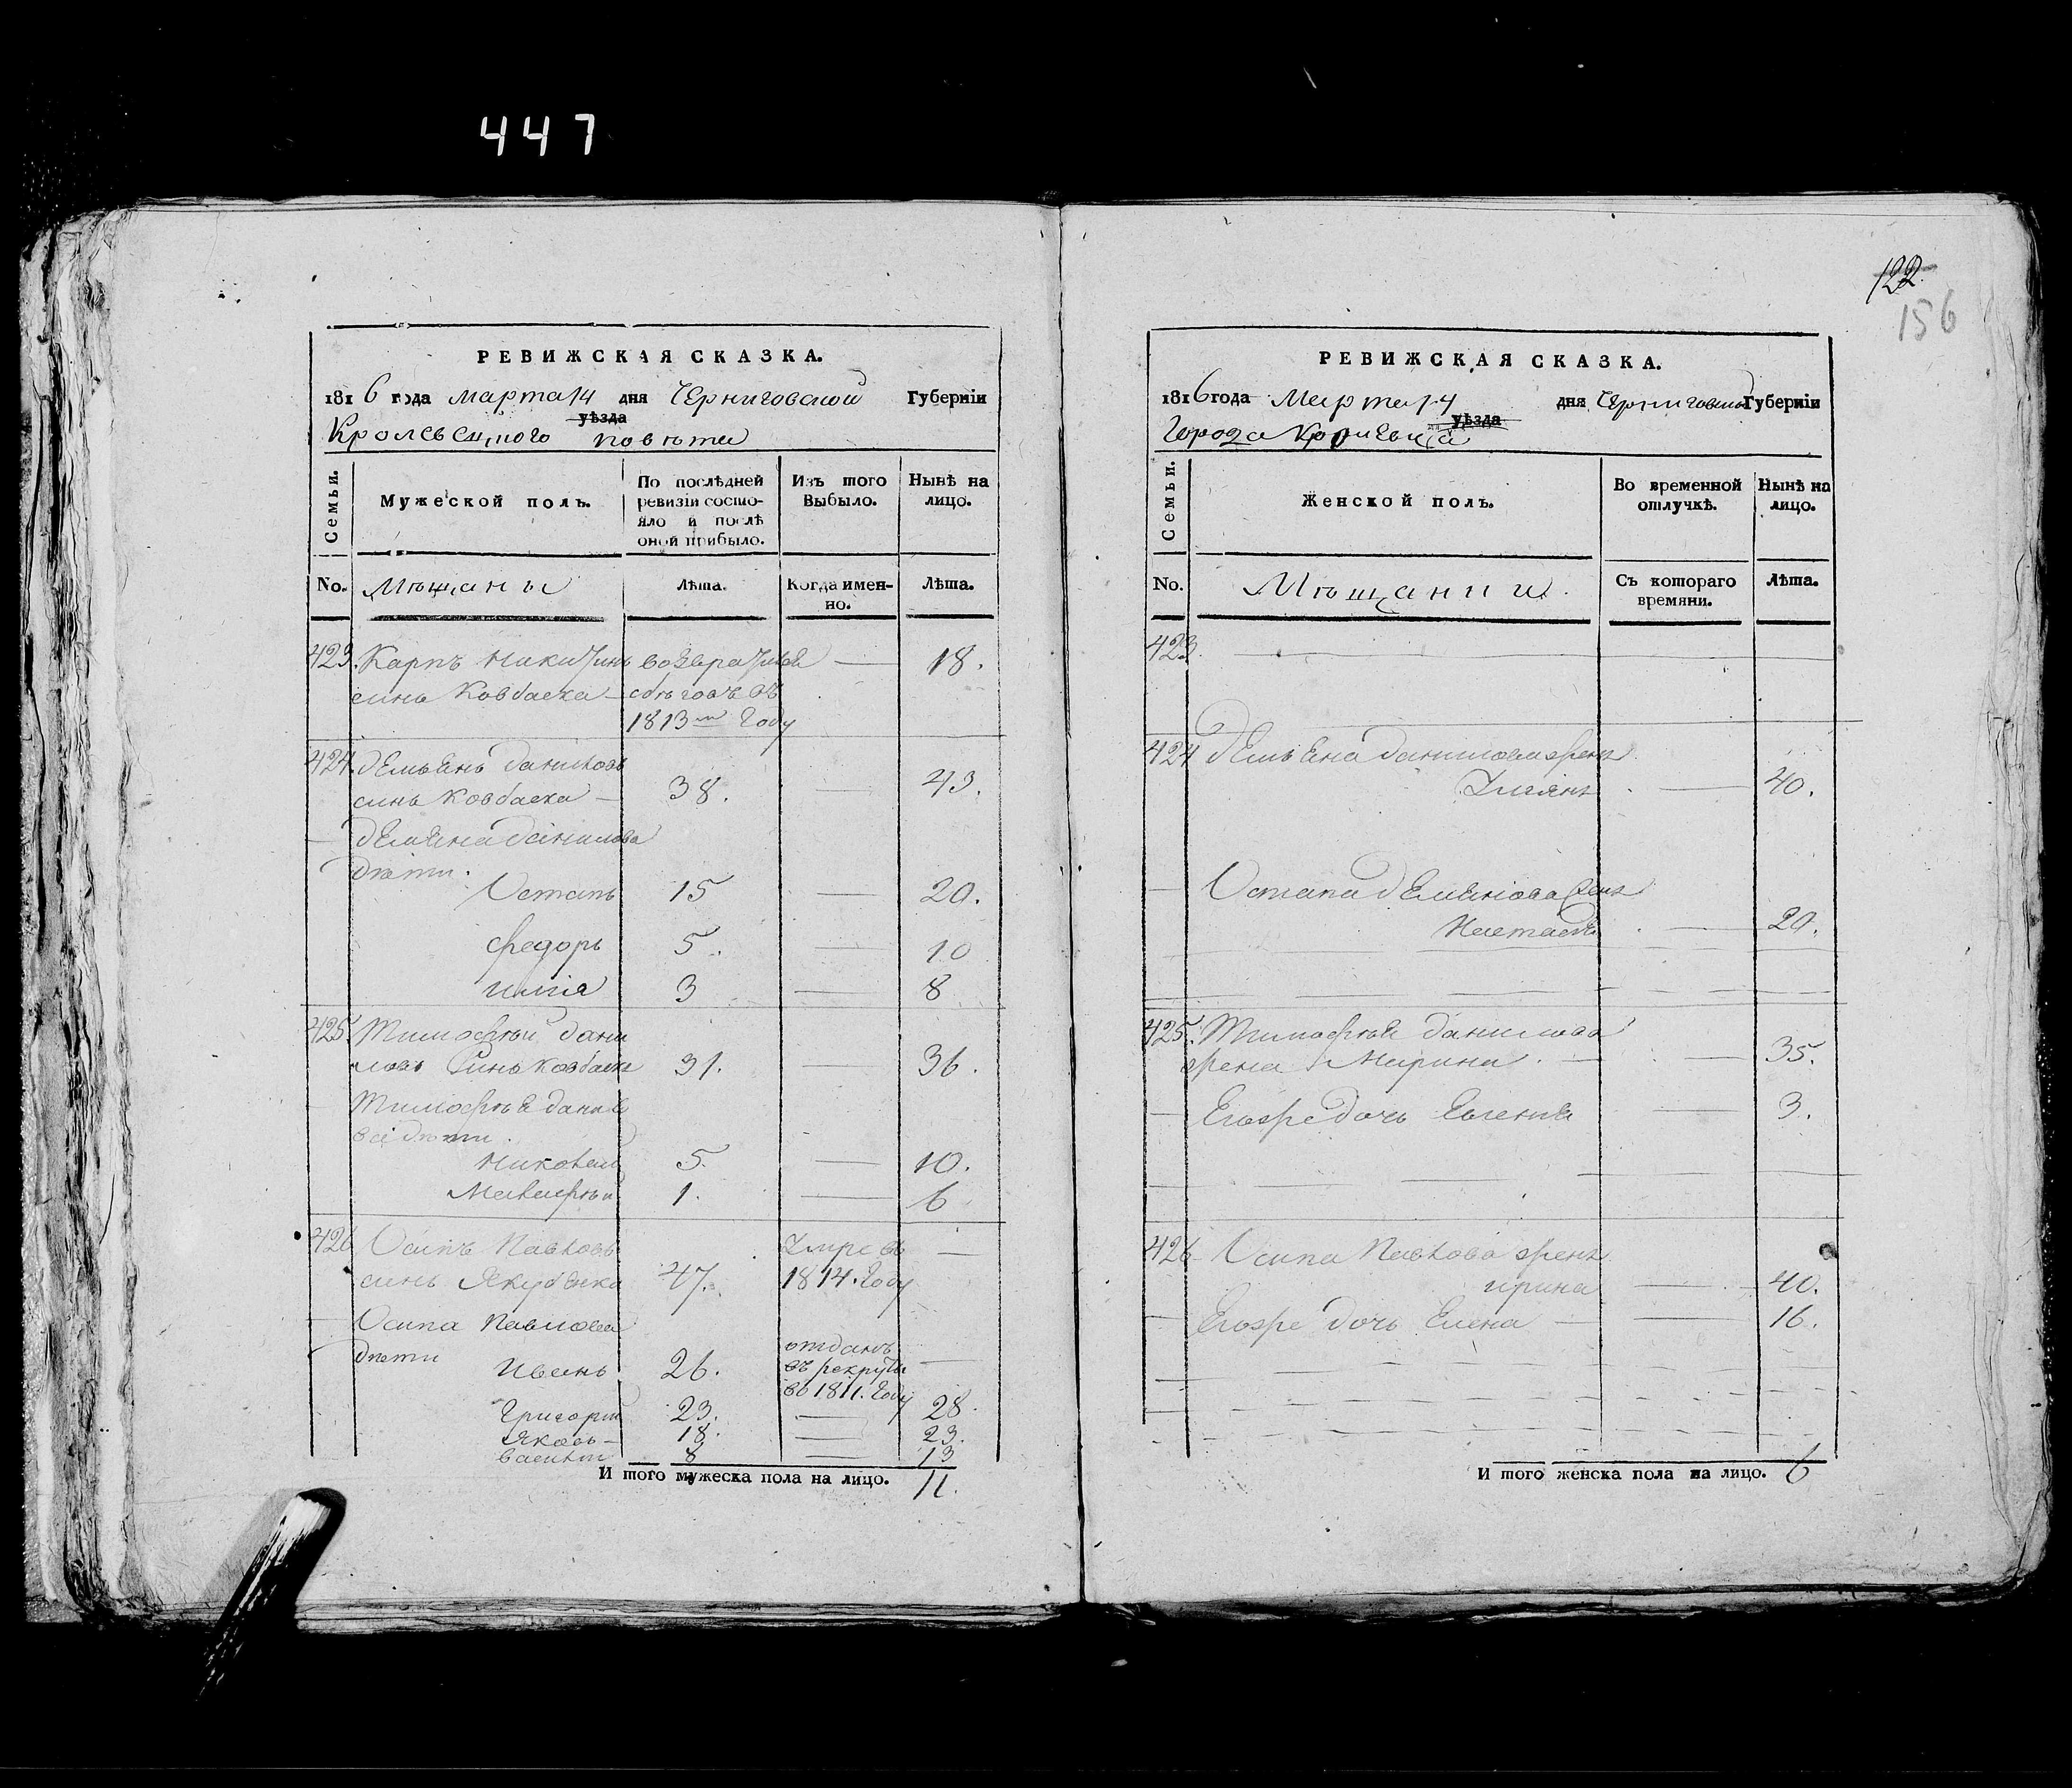 447
122
156
РЕВИЖСКАЯ СКАЗКА.
1816 года марта 14 дня Черниговской Губерніи
уѣзда
Кролевецкого повѣта
Семьи.
Мужеской полъ.
По послѣдней ревизіи состо-
яло и послѣ оной прибыло.
Изъ того Выбыло.
Нынѣ на лицо.
No.
Мѣщаны
Лѣта.
Когда имен-
но.
Лѣта.
423. Карпъ Никитинъ 18.
синъ Ковбаска
1813м Году
424. Демьянъ Даниловъ
синъ Ковбаска 38. 43.
Демяна Данилова
дѣти.
Остапъ 15 20.
Федоръ 5. 10
илія 3 8
425. Тимофѣй Дани
ловъ Синъ Ковбаска 31. 36.
Тимофѣя Данил
ва дѣти.
5. 10.
1. 6
426 Осипъ Павловъ умре въ
синъ 47. 1814. Году
Осипа Павлова
дѣти Иванъ 26. отданъ въ рекруты во 1811. Году
Григорій 23. 28.
Яковъ 18. 23.
8 13
И того мужеска пола на лицо. 11.
РЕВИЖСКАЯ СКАЗКА.
1816 года Марта 14 дня Черниговской Губерніи
уѣзда
Города
Семьи.
Женской полъ.
Во временной отлучкѣ.
Нынѣ на лицо.
No.
Мѣщанки.
Съ котораго времяни.
Лѣта.
423.
424 Демьяна Данилова жена
40.
Остапа Демянова жена
20.
425. Тимофѣя Данилова
жена Марина 35.
Егоже дочь Евгения 3.
426 Осипа Павлова жена
ирина 40.
Егоже дочь Елена 16.
И того женска пола на лицо. 6